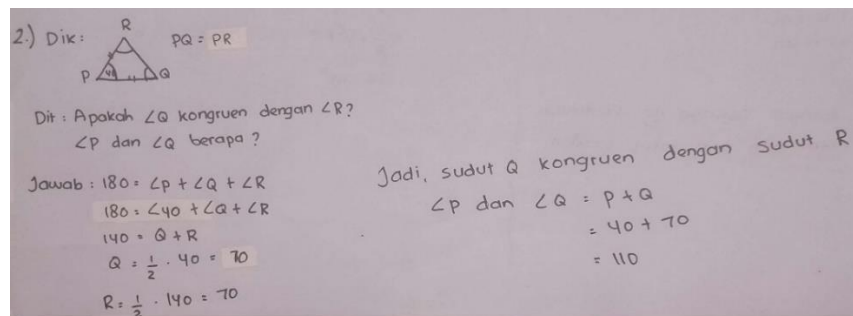 2.) Dik :
R
PQ = PR
P
40
Q
Dit : Apakah ∠Q kongruen dengan ∠R?
∠P dan ∠Q berapa ?
Jawab : 180 = ∠P + ∠Q + ∠R
180 = ∠40 + ∠Q + ∠R
140 = Q + R
Q = 1/2 . 40 = 70
R = 1/2 . 140 = 70
Jadi, sudut Q kongruen dengan sudut R
∠P dan ∠Q = P + Q
= 40 + 70
= 110